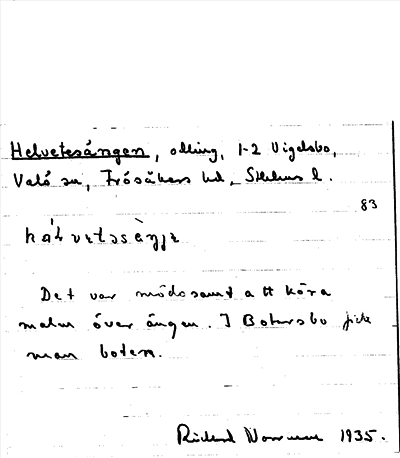 Helvetesängen, odling, 1-2 Vigelsbo,
Valö sn, Frösåkers hd, Sthlms l.
83
hä̀lvetəsèŋje
Det var mödosamt att köra
malm över ängen. I Botersbo fick
man boten.
Rickard 1935.